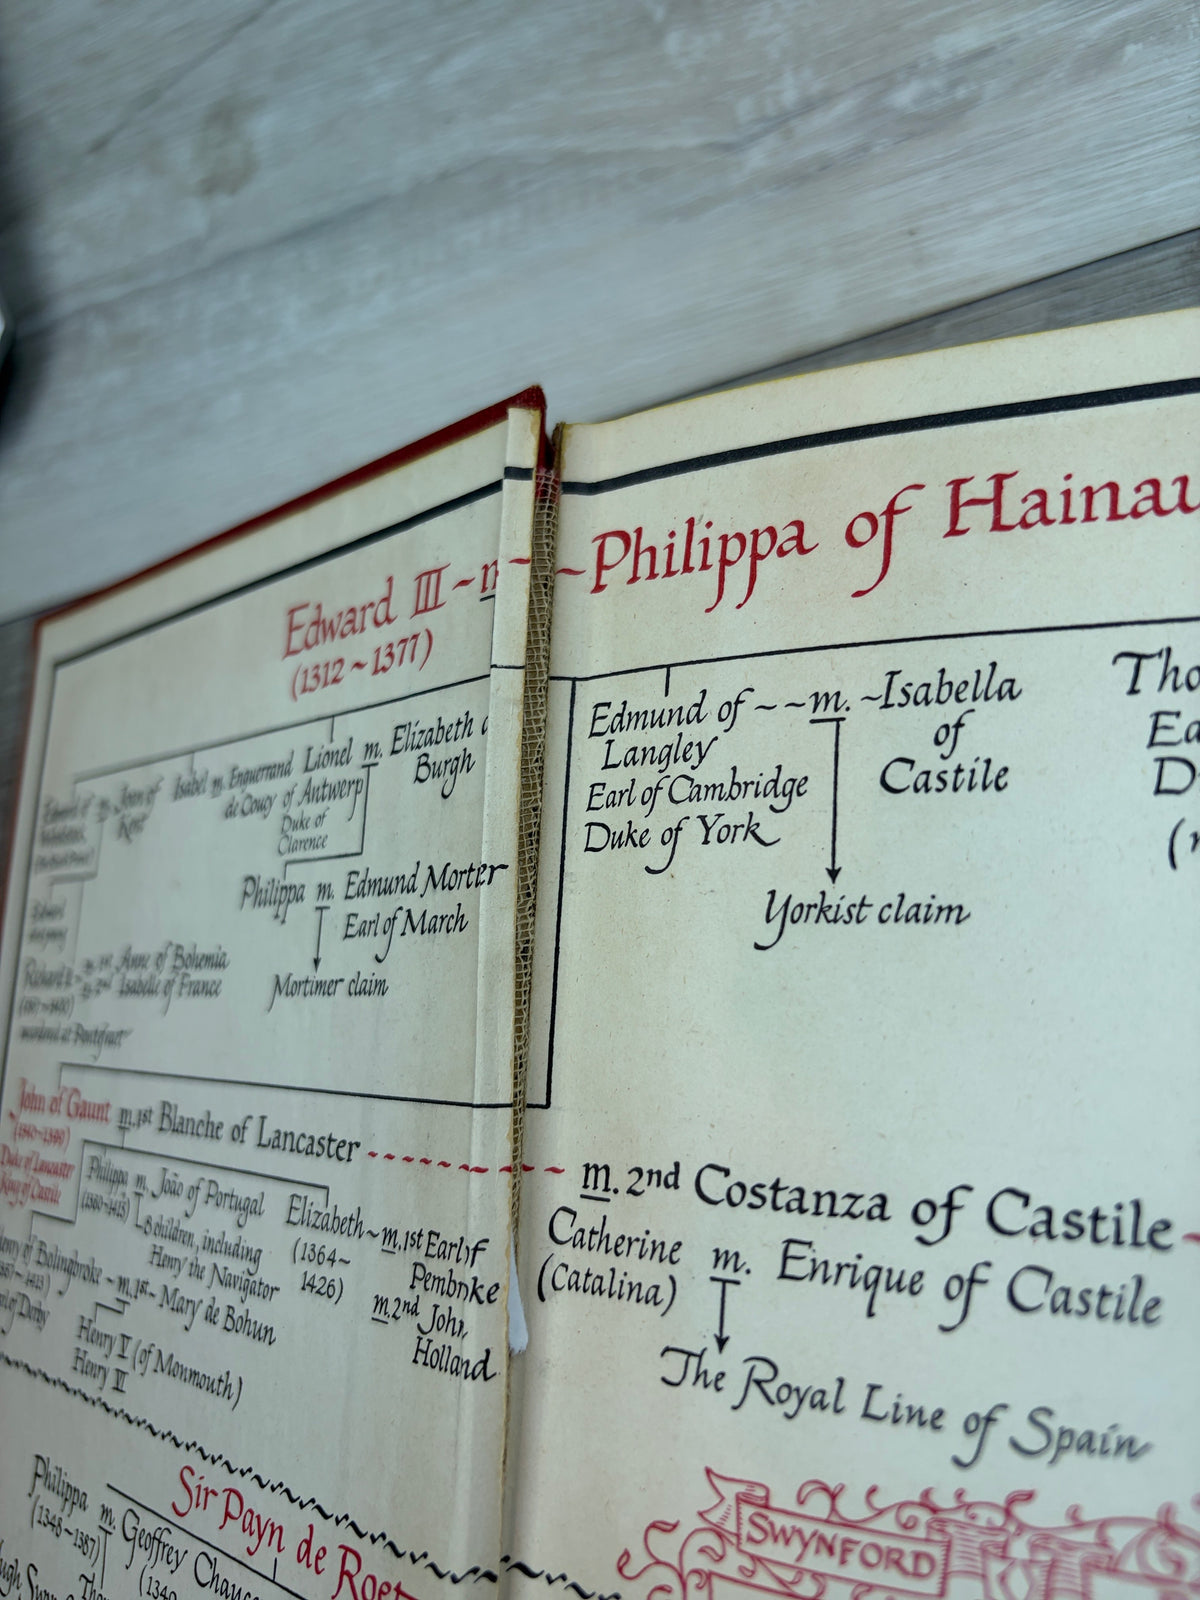 Edward III ~ m ~ ~ Philippa of Hainau
(1312 ~ 1377)
Edward of m. Joan of Kent
Isabel m. Enguerrand
de Coucy
Lionel m. Elizabeth
of Antwerp Burgh
Duke of
Clarence
Philippa m. Edmund Morter
Earl of March
Mortimer claim
Edward
Richard II m. 1st Anne of Bohemia
m. 2nd Isabelle of France
murdered at Pontefract
Edmund of ~ ~ m. ~ Isabella
Langley of
Earl of Cambridge Castile
Duke of York
Yorkist claim
Tho
Ea
D
John of Gaunt m. 1st Blanche of Lancaster
(1340~1399)
Duke of Lancaster
King of Castile
m. 2nd Costanza of Castile
Philippa m. João of Portugal
8 children, including
Henry the Navigator
Elizabeth ~ m. 1st Earl of
(1364~ Pembroke
1426) m. 2nd John
Holland
enry of Bolingbroke ~ m. 1st ~ Mary de Bohun
of Derby
Henry V (of Monmouth)
Catherine m. Enrique of Castile
(Catalina)
The Royal Line of Spain
Sir Payn de Roet
Philippa m. Geoffrey Chauc
(1348~1387) (1340
Tho
ugh Swyn
SWYNFORD